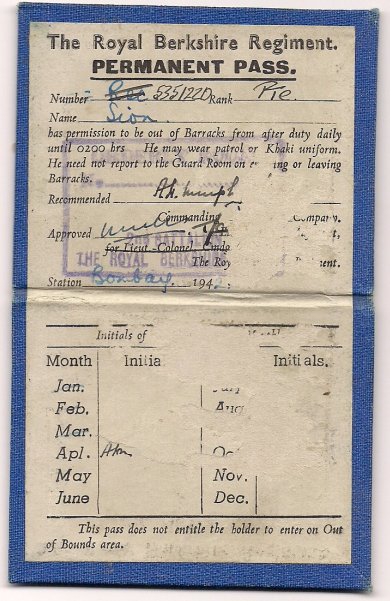 The Royal Berkshire Regiment.
PERMANENT PASS.
Number 5351220 Rank Pte
Name Sion
has permission to be out of Barracks from after duty daily
until 0200 hrs He may wear patrol or Khaki uniform.
He need not report to the Guard Room on or leaving
Barracks.
Recommended
Commanding Company.
Approved
for Lieut-Colonel,
THE ROYAL
The
Station Bombay 194
Initials of
Month Initia Initials.
Jan.
Feb. Aug
Mar.
Apl.
May Nov.
June Dec.
This pass does not entitle the holder to enter on Out
of Bounds area.